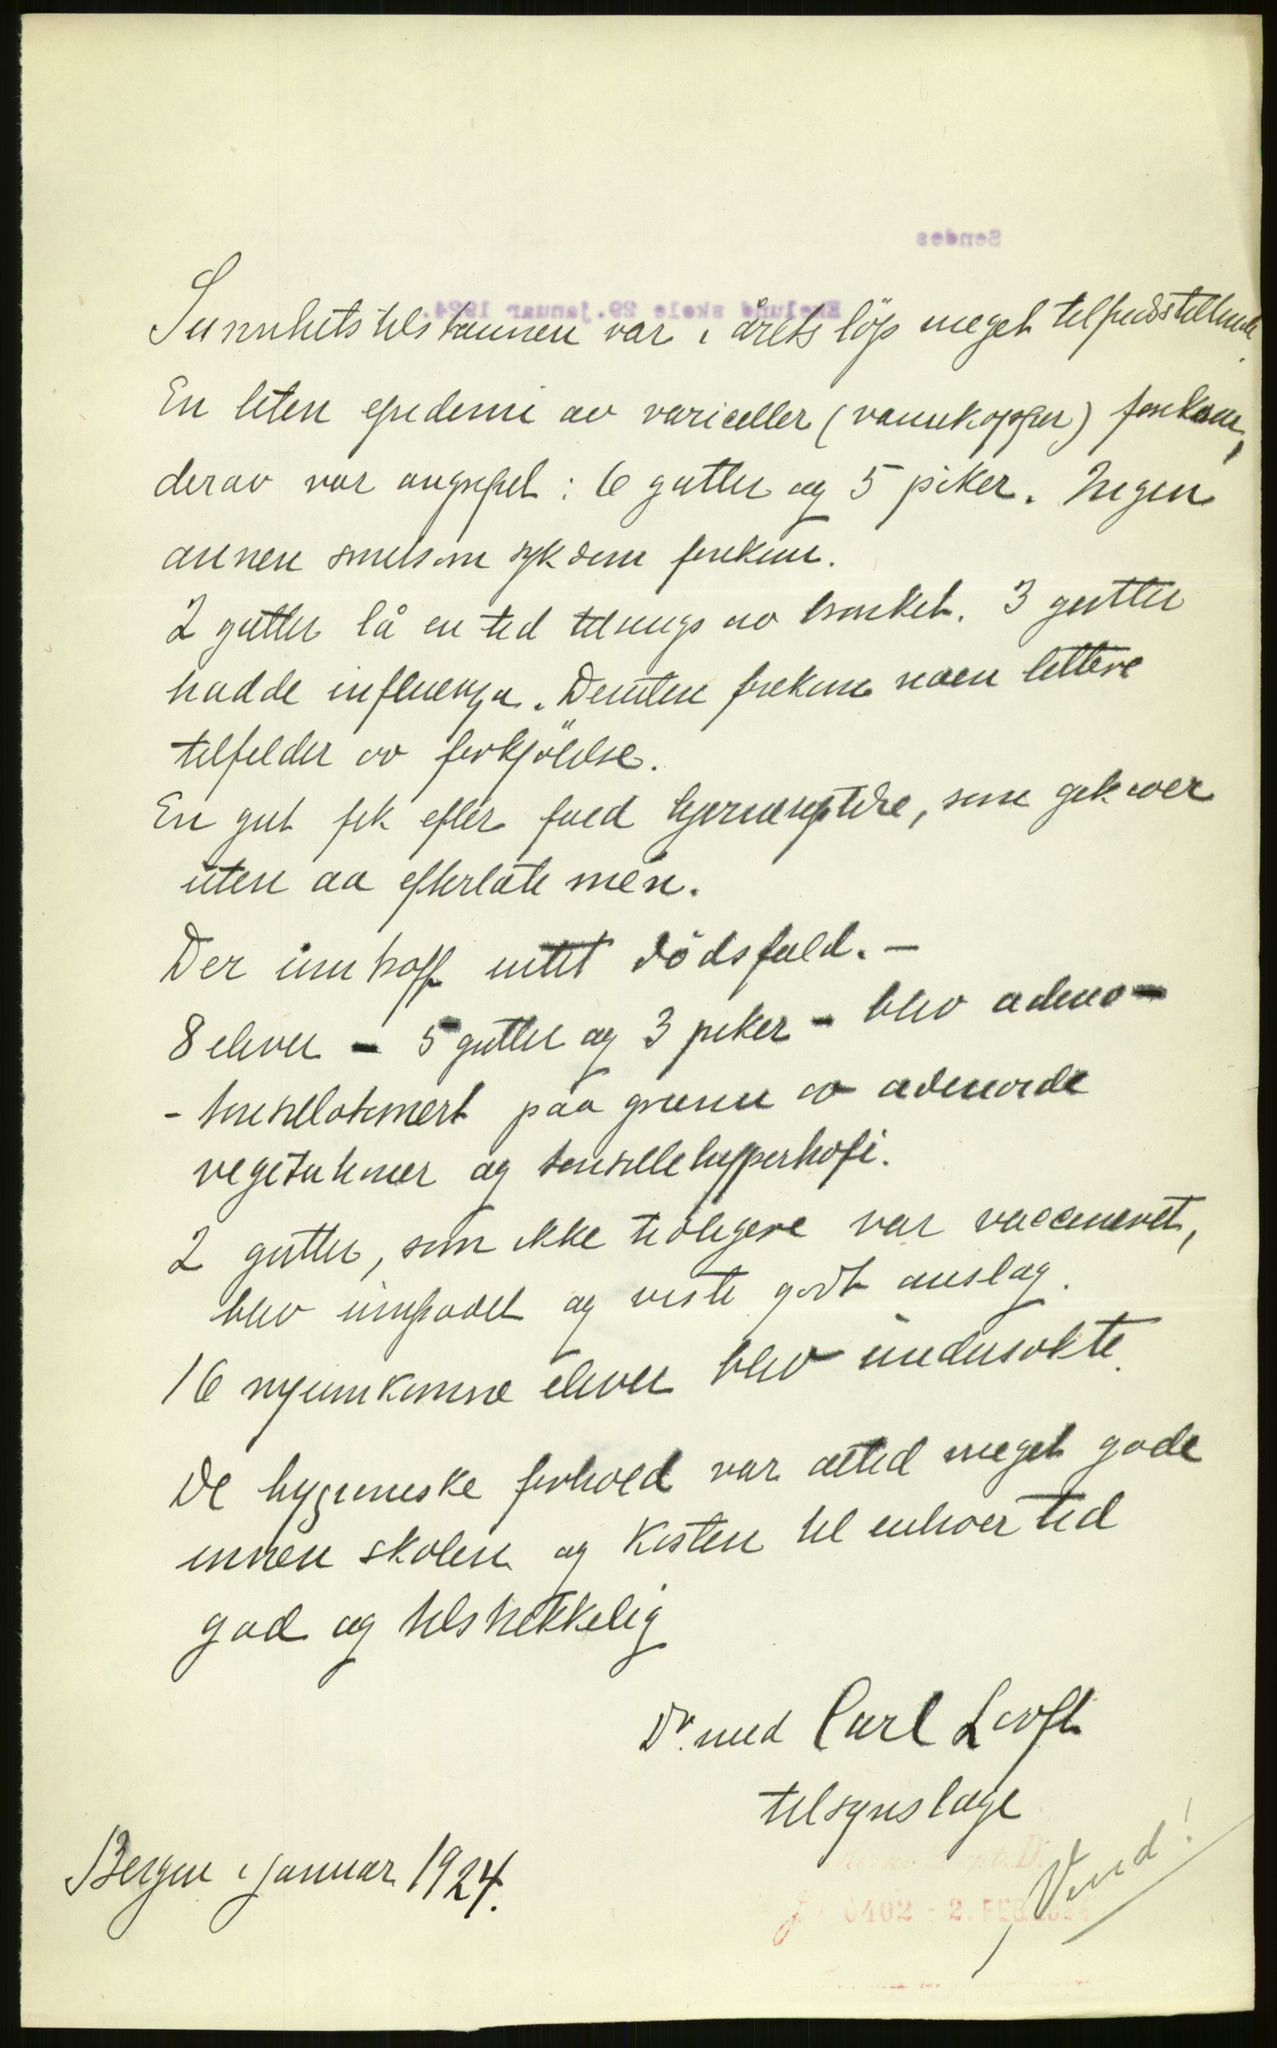 Sendes
Ekelund skole 29.januar 1924.
Sunnhetstilstannen var i årets löp meget tilfredsstillende.
En liten epidemi av variceller (vannkopper) forekom,
derav var angrepet : 6 gutter og 5 piker. Ingen
annen smitsom sykdom forekom.
2 gutter lå en tid tilsengs av bronket. 3 gutter
hadde influenza. Desuten forekom noen lettere
tilfelder av forkjölelse.
En gut fik efter fald hjernerystelse, som gik over
uten aa efterlate mén.
Der inntraff intet dödsfald. —
8 elever – 5 gutter og 3 piker – blev adeno–
– tonsillotomert paa grunn av adenoide
vegetationer og tonsillehypertrofi.
2 gutter, som ikke tidligere var vaccineret,
blev innpodet og viste godt anslag.
16 nyinnkomne elever blev undersøkte.
De hygieniske forhold var altid meget gode
innen skolen og kosten til enhver tid
god og tilstrekkelig
Dr. med Carl Looft
tilsynslæge
Bergen i januar 1924.
Vend!
0402 - 2. FEB. 1924